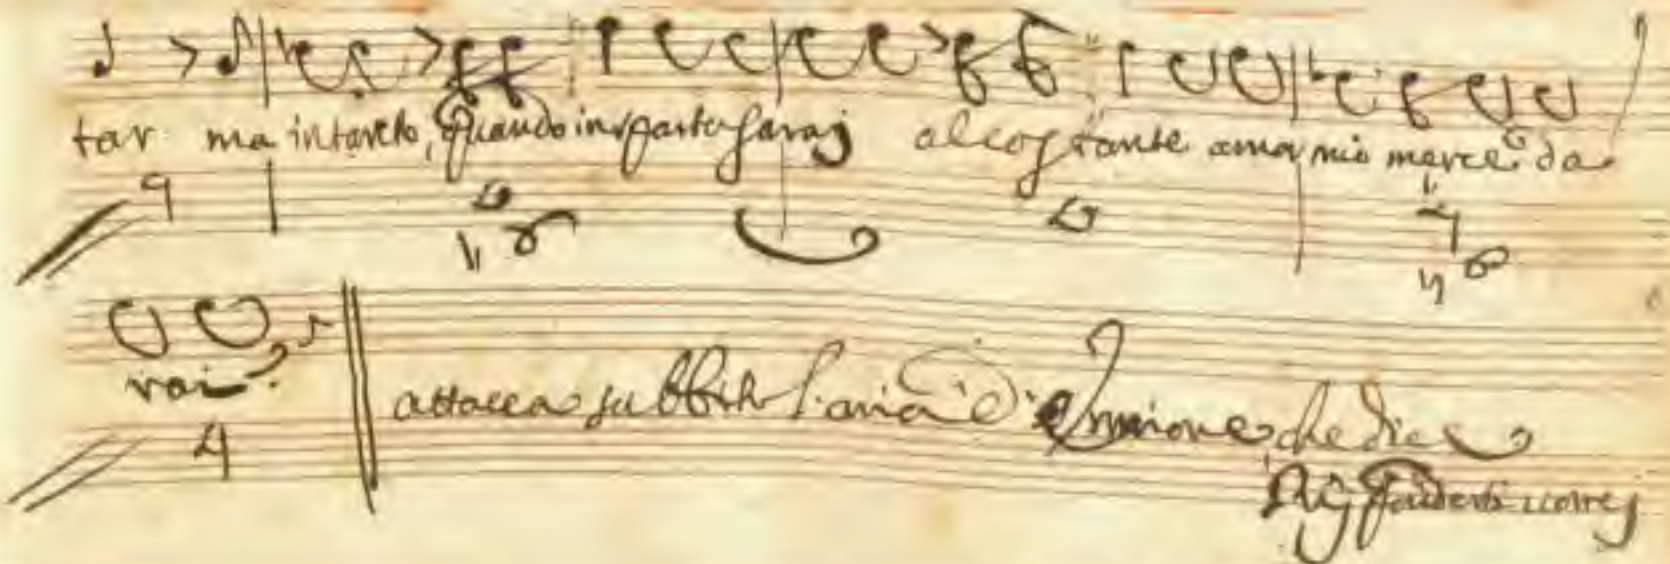 tar ma intanto, quando in Sparta sarai al costante amor mio mercè da
rai?
attacca subbito l'aria d' Ermione che dice